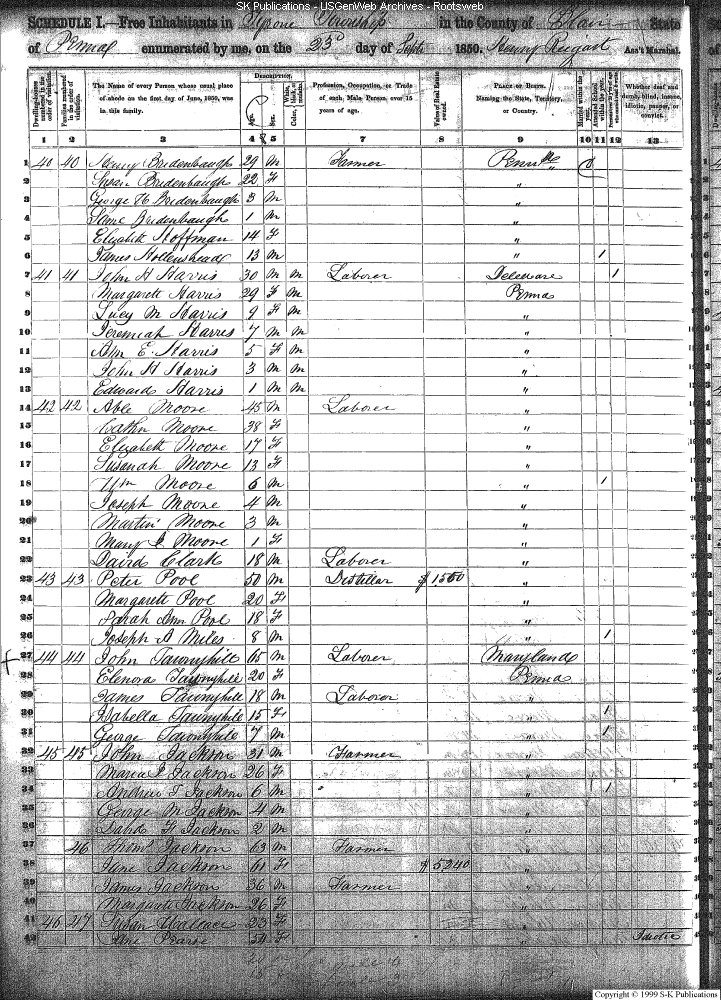 SK Publications - USGenWeb Archives - Rootsweb
SCHEDULE I.—Free Inhabitants in Tyrone Township in the County of Blair State
of Penna enumerated by me, on the 25 day of Sept 1850. Henry Ass't Marshal.
DESCRIPTION.
Dwelling-houses numbered in the order of visitation.
Families numbered in the order of visitation.
The Name of every Person whose usual place of abode on the first day of June, 1850, was in this family.
Age.
Sex.
Profession, Occupation, or Trade of each Male Person over 15 years of age.
Value of Real Estate owned.
PLACE OF BIRTH. Naming the State, Territory, or Country.
Married within the year.
Attended School within the year.
Whether deaf and dumb, blind, insane, idiotic, pauper, or convict.
1 2 3 4 5 6 7 8 9 10 11 12 13
1 40 40 Henry Bridenbaugh 29 M Farmer Penna
2 Susan Bridenbaugh 22 F "
3 George H Bridenbaugh 3 M "
4 Bridenbaugh 1 M "
5 Elizabeth Hoffman 14 F "
6 James Hollenshead 13 M " 1
7 41 41 John H Harris 30 M M Laborer Deleware 1
8 Margarett Harris 29 F M Penna
9 Lucy M Harris 9 F M "
10 Jeremiah Harris 7 M M "
11 Ann E. Harris 5 F M "
12 John H Harris 3 M M "
13 Edward Harris 1 M M "
14 42 42 Able Moore 45 M Laborer "
15 Cathn Moore 38 F "
16 Elizabeth Moore 17 F "
17 Susanah Moore 13 F "
18 Wm Moore 6 M " 1
19 Joseph Moore 4 M "
20 Martin Moore 3 M "
21 Mary J Moore 1 F "
22 David Clark 18 M Laborer "
23 43 43 Peter Pool 50 M Distillar $1500 "
24 Margarett Pool 20 F "
25 Sarah Ann Pool 18 F "
26 Joseph A Miles 8 M " 1
27 44 44 John Tawnyhill 65 M Laborer Maryland
28 Elenora Tawnyhill 20 F Penna
29 James Tawnyhill 18 M Laborer "
30 Isabella Tawnyhill 15 F " 1
31 George Tawnyhill 7 M " 1
32 45 45 John Jackson 31 M Farmer "
33 Maria J Jackson 26 F "
34 Andrew T Jackson 6 M " 1
35 George M Jackson 4 M "
36 David H Jackson 2 M "
37 46 Thoms Jackson 63 M Farmer "
38 Jane Jackson 61 F $5240 "
39 James Jackson 36 M Farmer "
40 Margarett Jackson 26 F "
41 46 47 Susan Wallace 23 F "
42 Jane Pearse 34 F " Idiotic
Copyright © 1999 S-K Publications